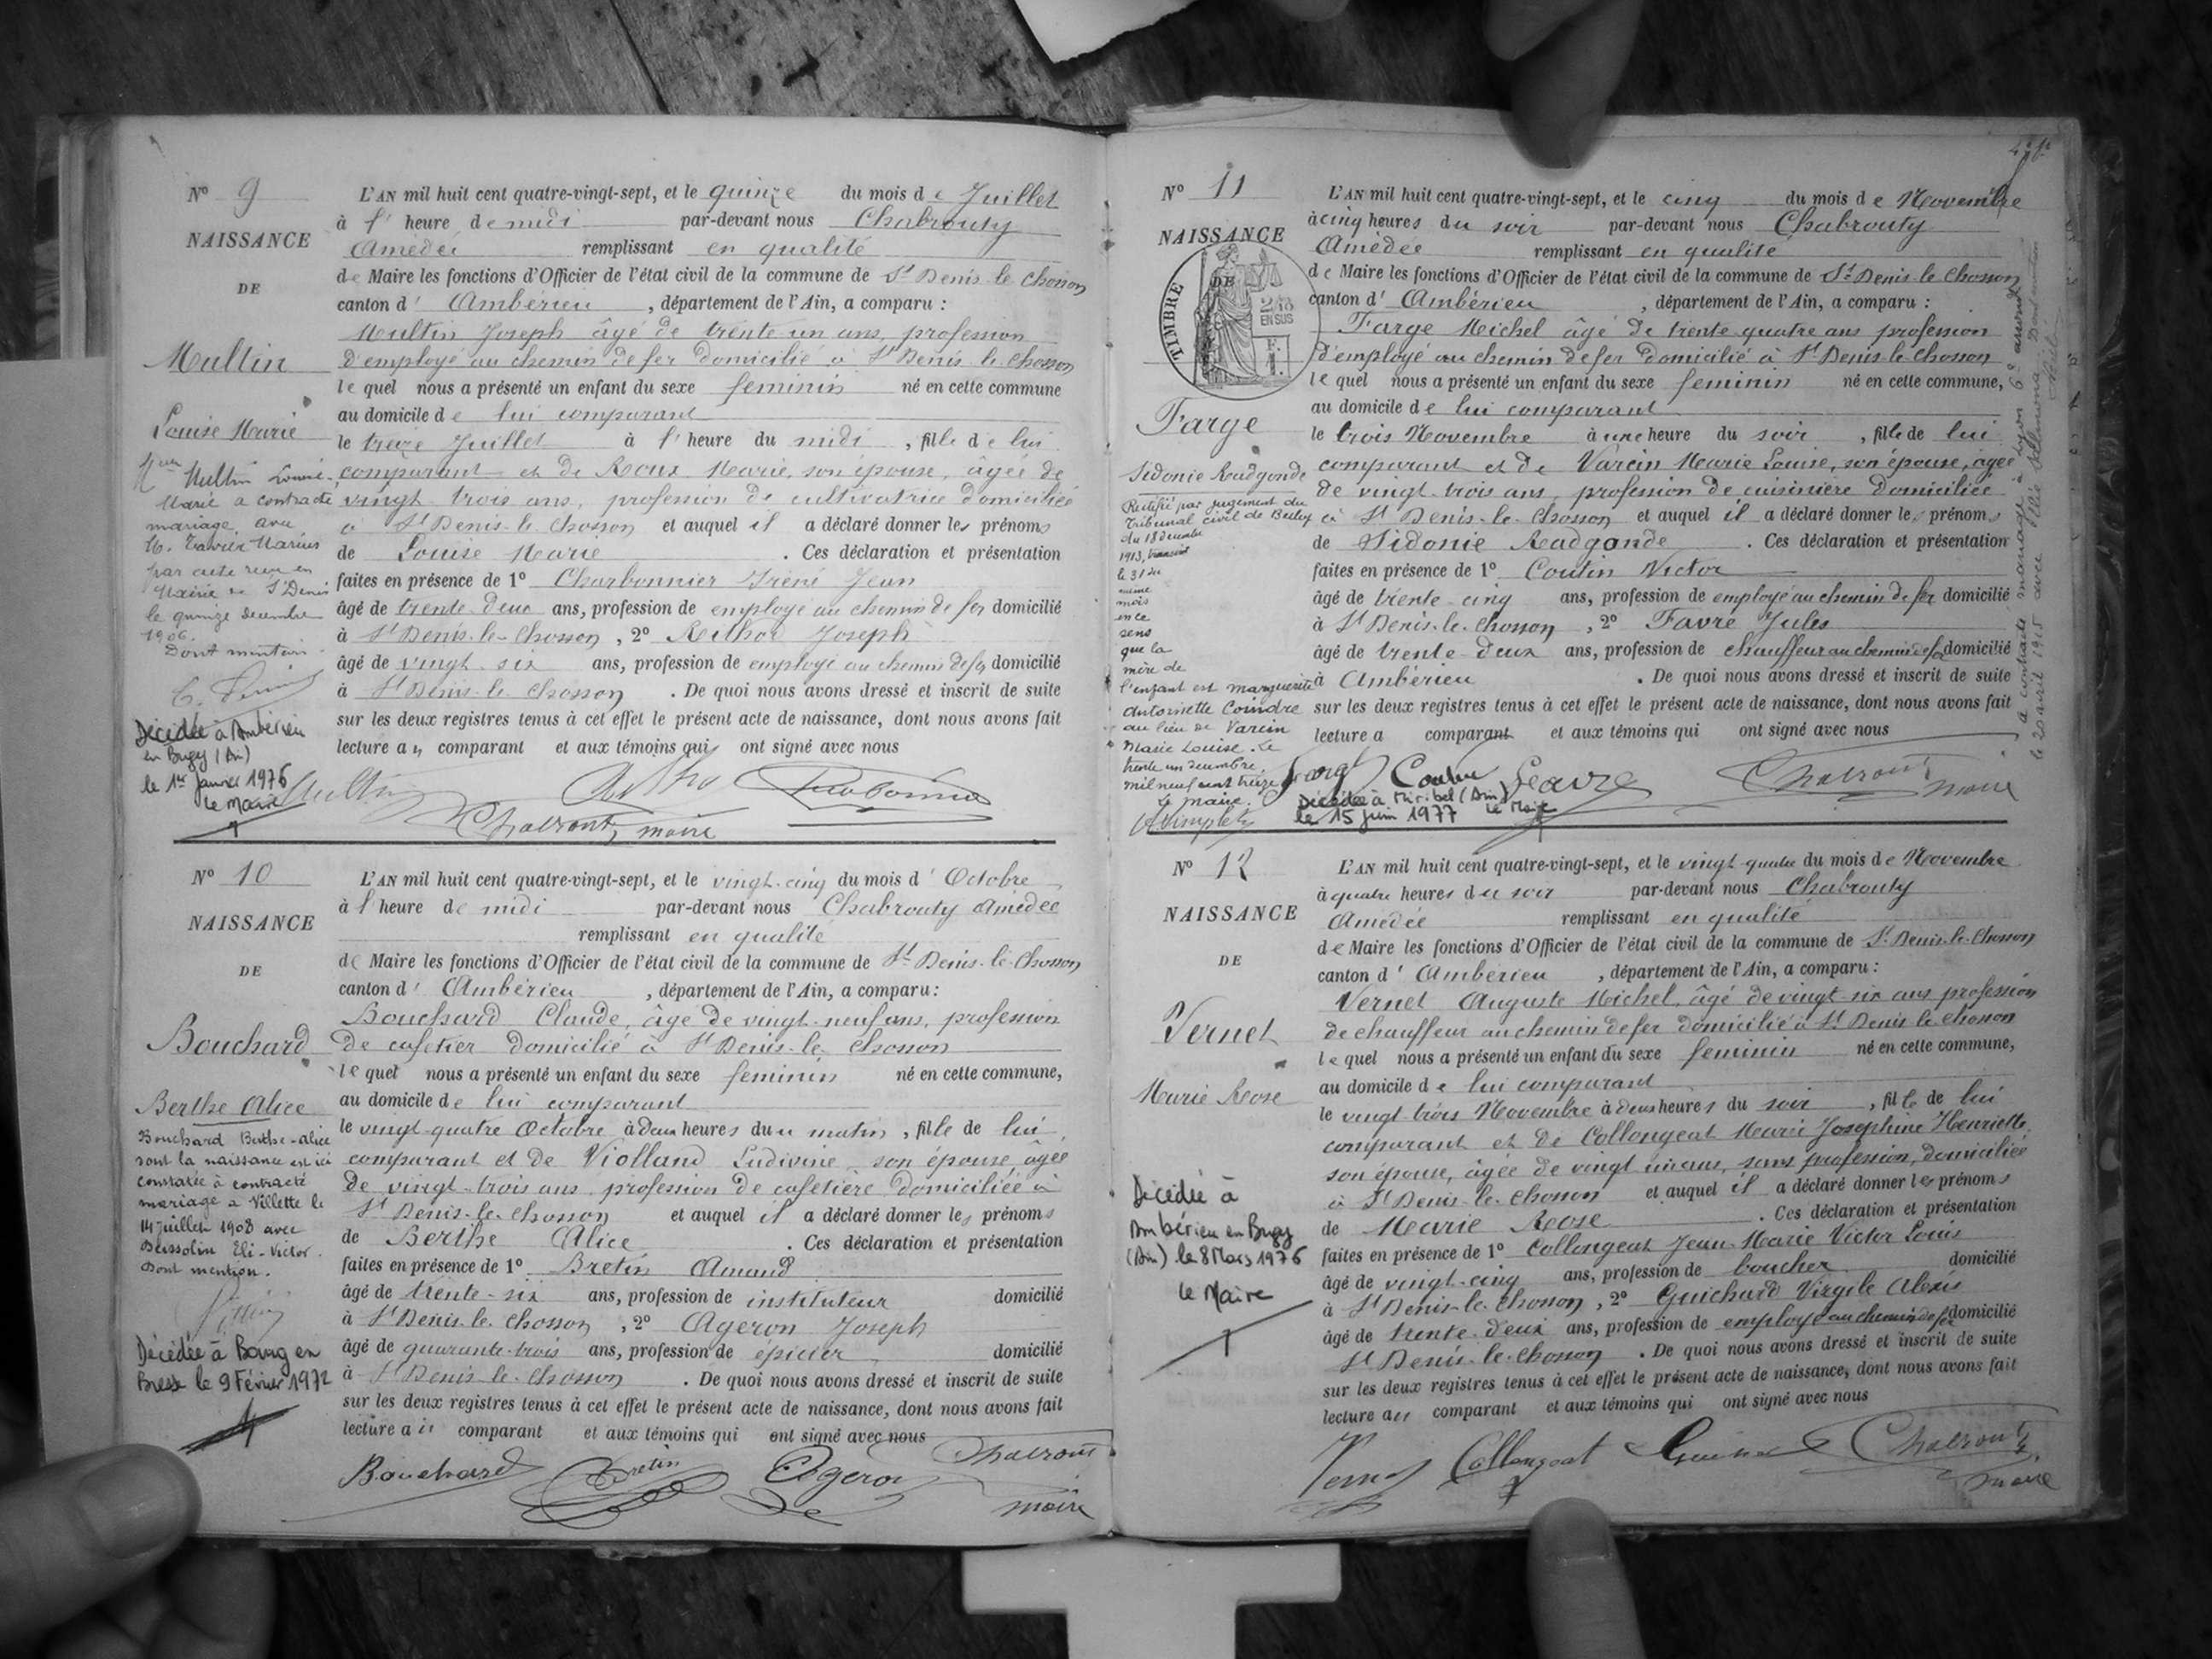 N° 9
NAISSANCE
DE
Multin
Louise Marie
Multin Louise-
Marie a contracté
mariage avec
M. Tavier Marius
par acte reçu en
Mairie de St Denis
le quinze decembre
1906.
Dont mention
Décédée à Ambérieu
en Bugey (Ain)
le 1er Janvier 1976
Le Maire
L'AN mil huit cent quatre-vingt-sept, et le quinze du mois de Juillet
à l' heure de midi par-devant nous Chabrouty
Amédée remplissant en qualité
de Maire les fonctions d'Officier de l'état civil de la commune de St Denis-le-Chosson
canton d' Ambérieu, département de l'Ain, a comparu :
Multin Joseph âgé de trente-un ans, profession
d'employé au chemin de fer domicilié à St Denis-le-Chosson
lequel nous a présenté un enfant du sexe feminin né en cette commune
au domicile de lui comparant
le treize Juillet à l'heure du midi, fille de lui
comparant et de Roux Marie, son épouse, âgée de
vingt-trois ans, profession de cultivatrice domiciliée
à St Denis-le-Chosson et auquel il a déclaré donner les prénoms
de Louise Marie. Ces déclaration et présentation
faites en présence de 1° Charbonnier Iréné Jean
âgé de trente-deux ans, profession de employé au chemin de fer domicilié
à St Denis-le-Chosson, 2° Joseph
âgé de vingt-six ans, profession de employé au chemin de fer domicilié
à St Denis-le-Chosson. De quoi nous avons dressé et inscrit de suite
sur les deux registres tenus à cet effet le présent acte de naissance, dont nous avons fait
lecture au comparant et aux témoins qui ont signé avec nous
Multin
Chabrouty maire
N° 10
NAISSANCE
DE
Bouchard
Berthe Alice
Bouchard Berthe-Alice
dont la naissance est ici
constatée à contracté
mariage à Villette le
14 juillet 1908 avec
Elie-Victor.
Dont mention.
Décédée à Bourg en
Bresse le 9 Février 1972
L'AN mil huit cent quatre-vingt-sept, et le vingt-cinq du mois d' Octobre
à l'heure de midi par-devant nous Chabrouty Amédée
remplissant en qualité
de Maire les fonctions d'Officier de l'état civil de la commune de St Denis-le-Chosson
canton d' Ambérieu, département de l'Ain, a comparu :
Bouchard Claude, âgé de vingt-neuf ans, profession
de cafetier domicilié à St Denis-le-Chosson
lequel nous a présenté un enfant du sexe feminin né en cette commune,
au domicile de lui comparant
le vingt-quatre Octobre à deux heures du matin, fille de lui
comparant et de Violland Ludivine son épouse âgée
de vingt-trois ans, profession de cafetière domiciliée à
St Denis-le-Chosson et auquel il a déclaré donner les prénoms
de Berthe Alice. Ces déclaration et présentation
faites en présence de 1° Bretin Amand
âgé de trente-six ans, profession de instituteur domicilié
à St Denis-le-Chosson, 2° Ageron Joseph
âgé de quarante-trois ans, profession de epicier domicilié
à St Denis-le-Chosson. De quoi nous avons dressé et inscrit de suite
sur les deux registres tenus à cet effet le présent acte de naissance, dont nous avons fait
lecture au comparant et aux témoins qui ont signé avec nous
Bouchard Bretin Ageron Chabrouty
maire
N° 11
NAISSANCE
DE
TIMBRE
2/10
EN SUS
Farge
Sidonie Radgonde
Rectifié par jugement du
Tribunal civil de Belley
du 18 décembre
1913, transcrit
le 31 du
même
mois
en ce
sens
que la
mère de
l'enfant est marguerite
antoinette Coindre
au lieu de Varcin
Marie Louise. Le
trente un décembre
mil neuf cent treize
Le maire.
L'AN mil huit cent quatre-vingt-sept, et le cinq du mois de Novembre
à cinq heures du soir par-devant nous Chabrouty
Amédée remplissant en qualité
de Maire les fonctions d'Officier de l'état civil de la commune de St Denis-le-Chosson
canton d' Ambérieu, département de l'Ain, a comparu :
Farge Michel âgé de trente-quatre ans profession
d'employé au chemin de fer domicilié à St Denis-le-Chosson
lequel nous a présenté un enfant du sexe feminin né en cette commune,
au domicile de lui comparant
le trois Novembre à une heure du soir, fille de lui
comparant et de Varcin Marie Louise, son épouse, âgée
de vingt-trois ans, profession de cuisinière domiciliée
à St Denis-le-Chosson et auquel il a déclaré donner les prénoms
de Sidonie Radgonde. Ces déclaration et présentation
faites en présence de 1° Coutin Victor
âgé de trente-cinq ans, profession de employé au chemin de fer domicilié
à St Denis-le-Chosson, 2° Favre Jules
âgé de trente-deux ans, profession de chauffeur au chemin de fer domicilié
à Ambérieu. De quoi nous avons dressé et inscrit de suite
sur les deux registres tenus à cet effet le présent acte de naissance, dont nous avons fait
lecture a comparant et aux témoins qui ont signé avec nous
Farge Coutin Favre Chabrouty maire
Décédée à Miribel (Ain)
le 15 juin 1977 Le Maire
a contracté mariage à Lyon 6e arrond
le 20 avril 1915 avec
N° 12
NAISSANCE
DE
Vernet
Marie Rose
Décédée à
Ambérieu en Bugey
(Ain) le 8 Mars 1976
Le Maire
L'AN mil huit cent quatre-vingt-sept, et le vingt-quatre du mois de Novembre
à quatre heures du soir par-devant nous Chabrouty
Amédée remplissant en qualité
de Maire les fonctions d'Officier de l'état civil de la commune de St Denis-le-Chosson
canton d' Ambérieu, département de l'Ain, a comparu :
Vernet Auguste Michel, âgé de vingt-six ans profession
de chauffeur au chemin de fer domicilié à St Denis-le-Chosson
lequel nous a présenté un enfant du sexe feminin né en cette commune,
au domicile de lui comparant
le vingt-trois Novembre à deux heures du soir, fille de lui
comparant et de Collongeat Marie Josephine Henriette
son épouse, âgée de vingt ans, sans profession, domiciliée
à St Denis-le-Chosson et auquel il a déclaré donner les prénoms
de Marie Rose. Ces déclaration et présentation
faites en présence de 1° Collongeat Jean-Marie Victor Louis
âgé de vingt-cinq ans, profession de boucher domicilié
à St Denis-le-Chosson, 2° Guichard Virgile Alexis
âgé de trente-deux ans, profession de employé au chemin de fer domicilié
St Denis-le-Chosson. De quoi nous avons dressé et inscrit de suite
sur les deux registres tenus à cet effet le présent acte de naissance, dont nous avons fait
lecture au comparant et aux témoins qui ont signé avec nous
Vernet Collongeat Guichard Chabrouty
maire